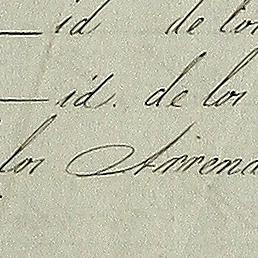 — id de los
— id. de los
los Arrenda